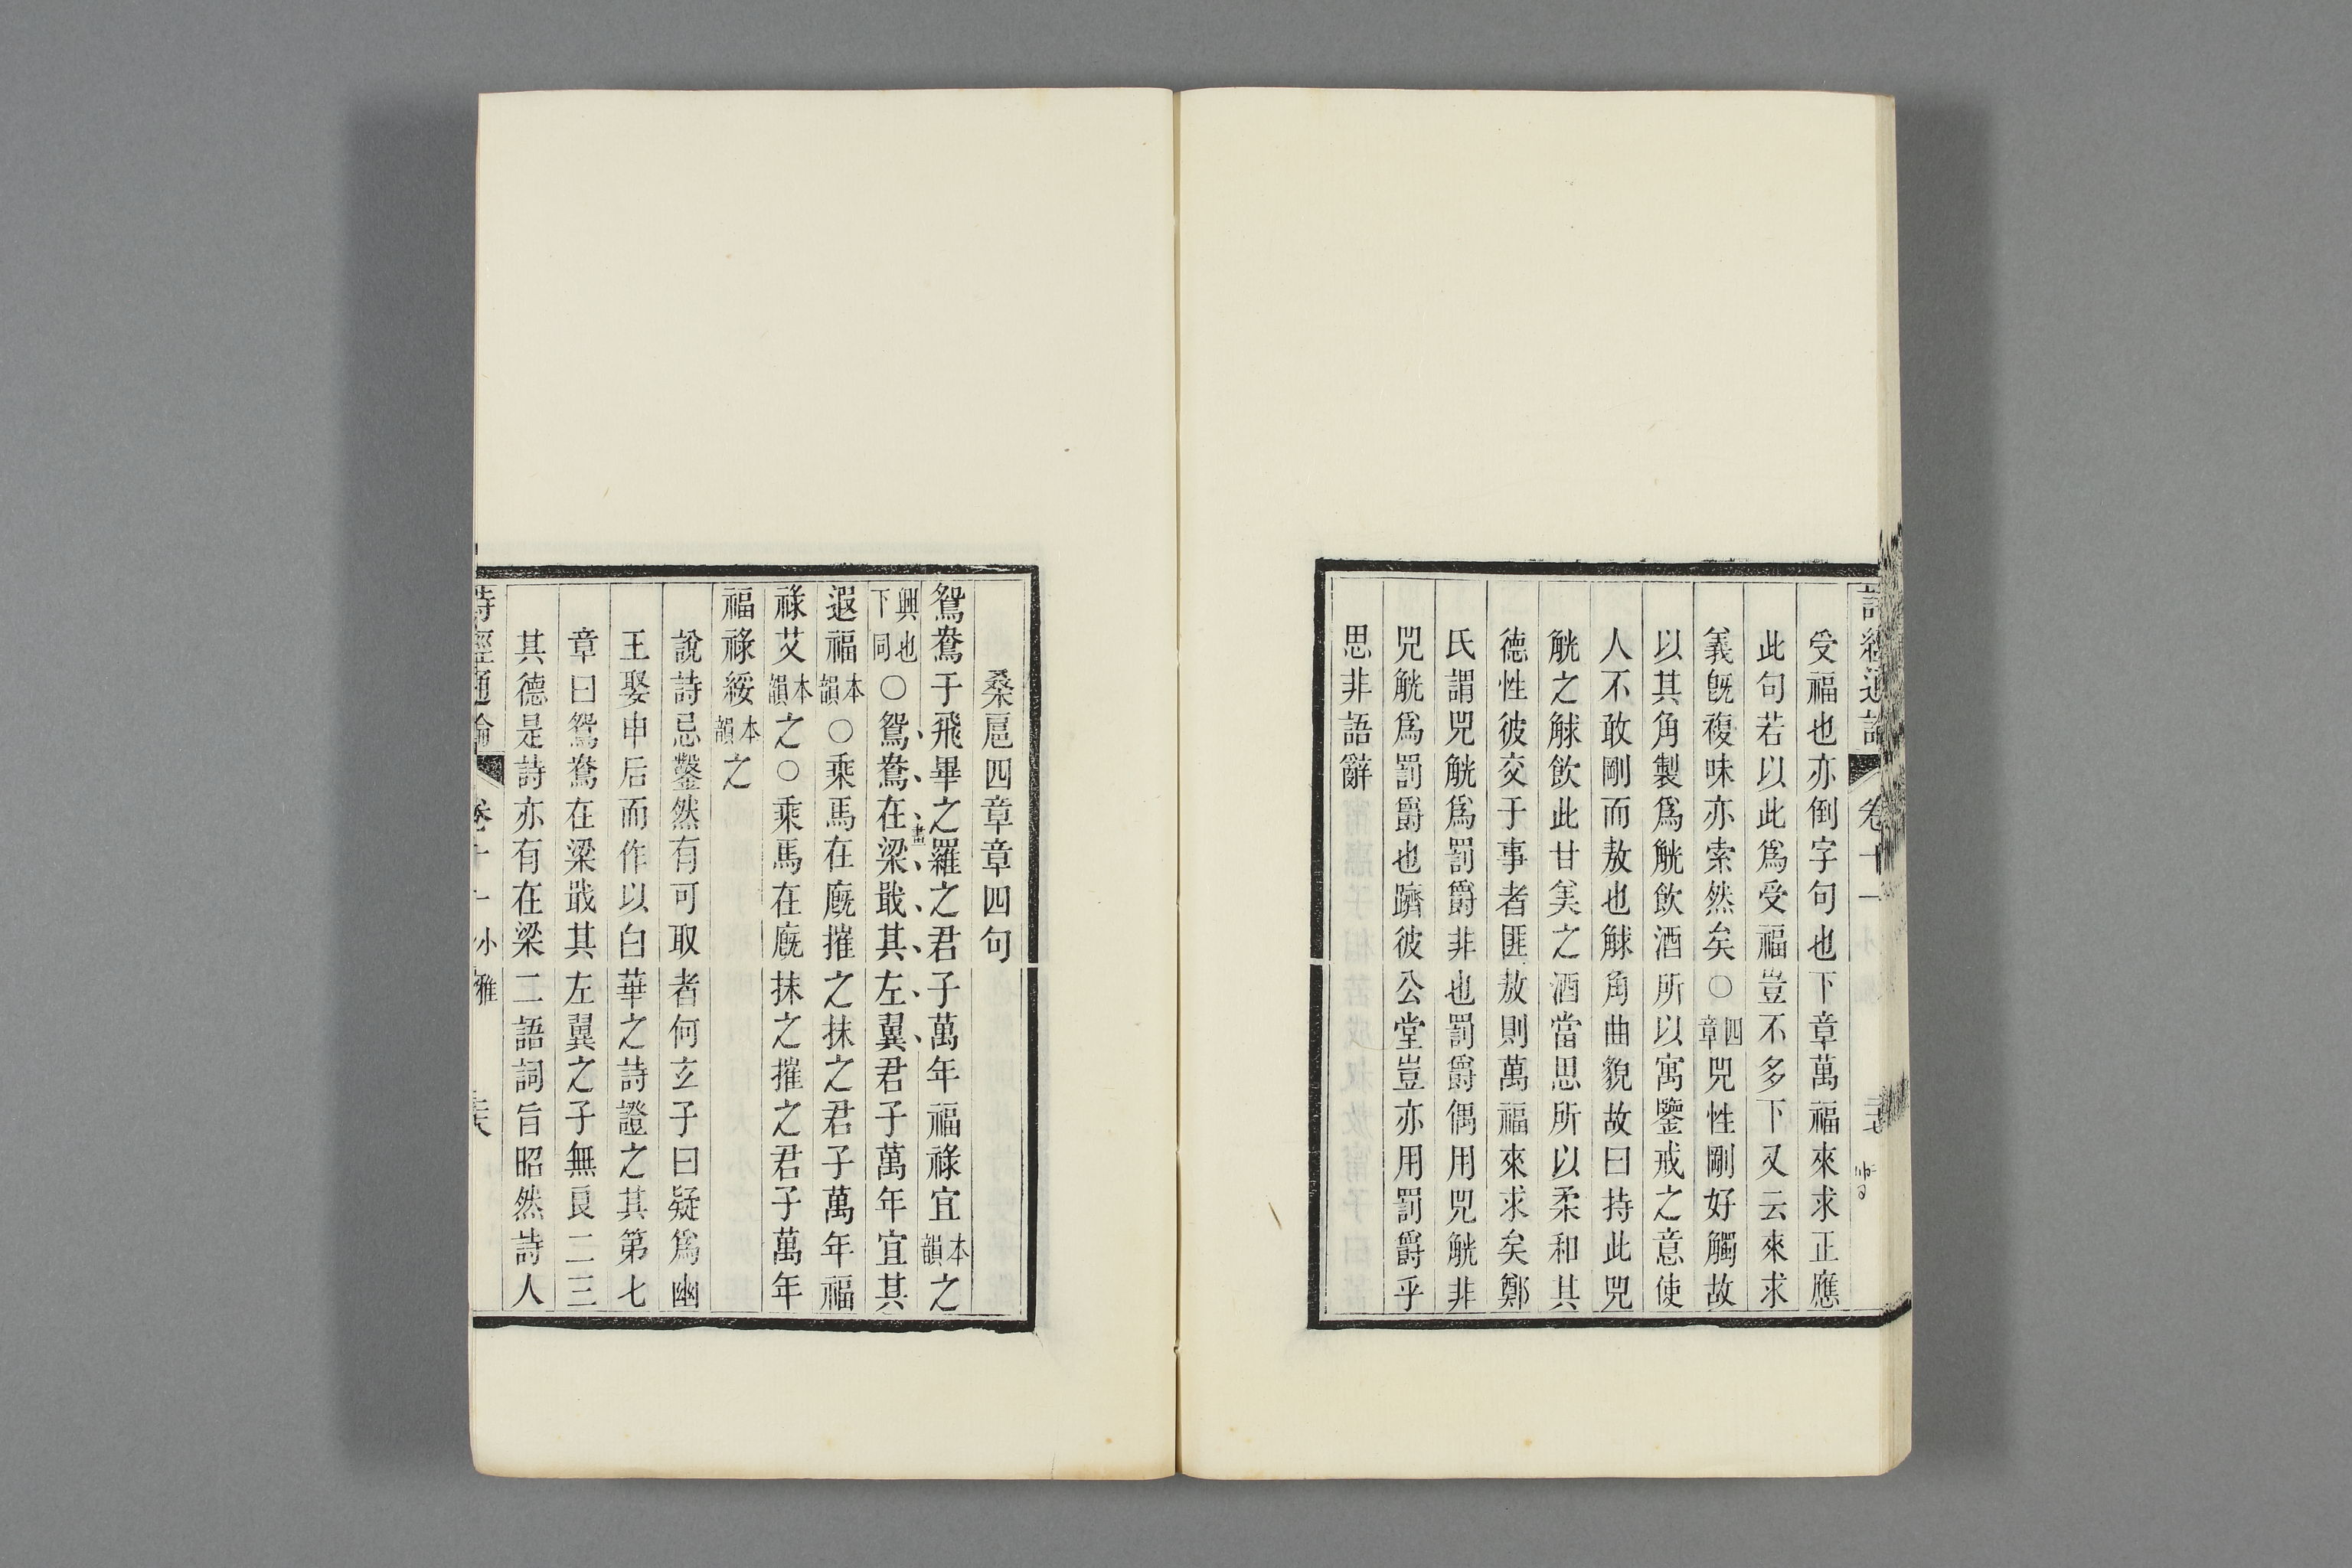 詩經通論 卷十一
受福也亦倒字句也下章萬福來求正應
此句若以此爲受福豈不多下又云來求
義旣複味亦索然矣○四章兕性剛好觸故
以其角製爲觥飲酒所以寓鑒戒之意使
人不敢剛而敖也觩角曲貌故曰持此兕
觥之觩飲此甘美之酒當思所以柔和其
德性彼交于事者匪敖則萬福來求矣鄭
氏謂兕觥爲罰爵非也罰爵偶用兕觥非
兕觥爲罰爵也躋彼公堂豈亦用罰爵乎
思非語辭
桑扈四章章四句
鴛鴦于飛畢之羅之君子萬年福祿宜本韻之
興也下同○鴛鴦在梁戢其左翼君子萬年宜其
遐福本韻○乘馬在廐摧之抹之君子萬年福
祿艾本韻之○乘馬在廐抹之摧之君子萬年
福祿綏本韻之
說詩忌鑿然有可取者何玄子曰疑爲幽
王娶申后而作以白華之詩證之其第七
章曰鴛鴦在梁戢其左翼之子無良二三
其德是詩亦有在梁二語詞旨昭然詩人
詩經通論 卷十一 小雅